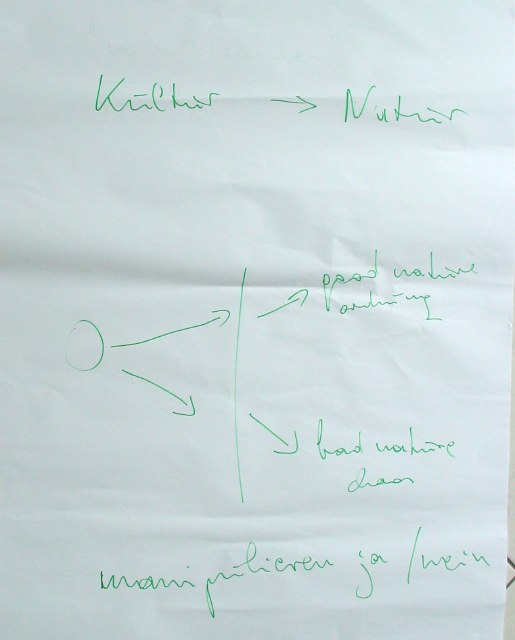 Kultur → Natur
good nature
ordnung
bad nature
chaos
manipulieren ja / nein